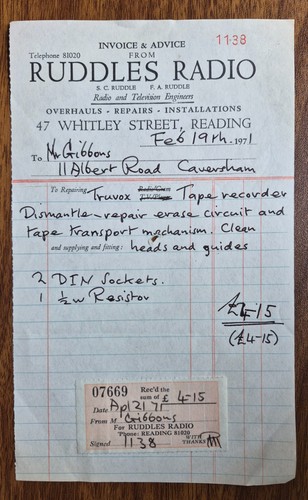 INVOICE & ADVICE
1138
Telephone 81020
FROM
RUDDLES RADIO
S. C. RUDDLE F. A. RUDDLE
Radio and Television Engineers
OVERHAULS - REPAIRS - INSTALLATIONS
47 WHITLEY STREET, READING
Feb 19th 1971
To Mr Gibbons
11 Albert Road Caversham
To Repairing Truvox Tape recorder
Dismantle - repair erase circuit and
tape transport mechanism. Clean
and supplying and fitting: heads and guides
2 DIN Sockets.
1 ½w Resistor
£4-15
(£4-15)
07669 Rec'd the
sum of £ 4-15
Date Ap 21 71
From M Gibbons
For RUDDLES RADIO
'Phone: READING 81020
Signed 1138 WITH
THANKS